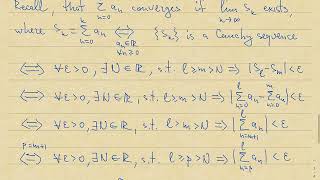 Recall, that ∑_{n=0}^{∞} a_n converges if lim_{k→∞} S_k exists,
where S_k = ∑_{n=0}^{k} a_n ⟺ {S_k} is a Cauchy sequence
a_n∈ℝ
∀n≥0
⟺ ∀ε>0, ∃N∈ℝ, s.t. l>m>N ⟹ |S_l - S_m|<ε
⟺ ∀ε>0, ∃N∈ℝ, s.t. l>m>N ⟹ |∑_{n=0}^{l} a_n - ∑_{n=0}^{m} a_n|<ε
⟺ ∀ε>0, ∃N∈ℝ, s.t. l>m>N ⟹ |∑_{n=m+1}^{l} a_n|<ε
p=m+1
⟺ ∀ε>0, ∃N∈ℝ, s.t. l>p>N ⟹ |∑_{n=p}^{l} a_n|<ε